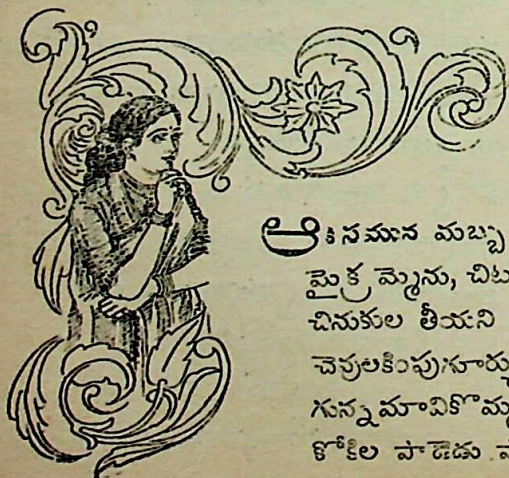 ఆకసమున మబ్బు
మైక్రమ్మెను, చిట
చినుకుల తీయని
చెవులకింపుగూర్చు
గున్నమావికొమ్మ
కోకిల పాడెడు